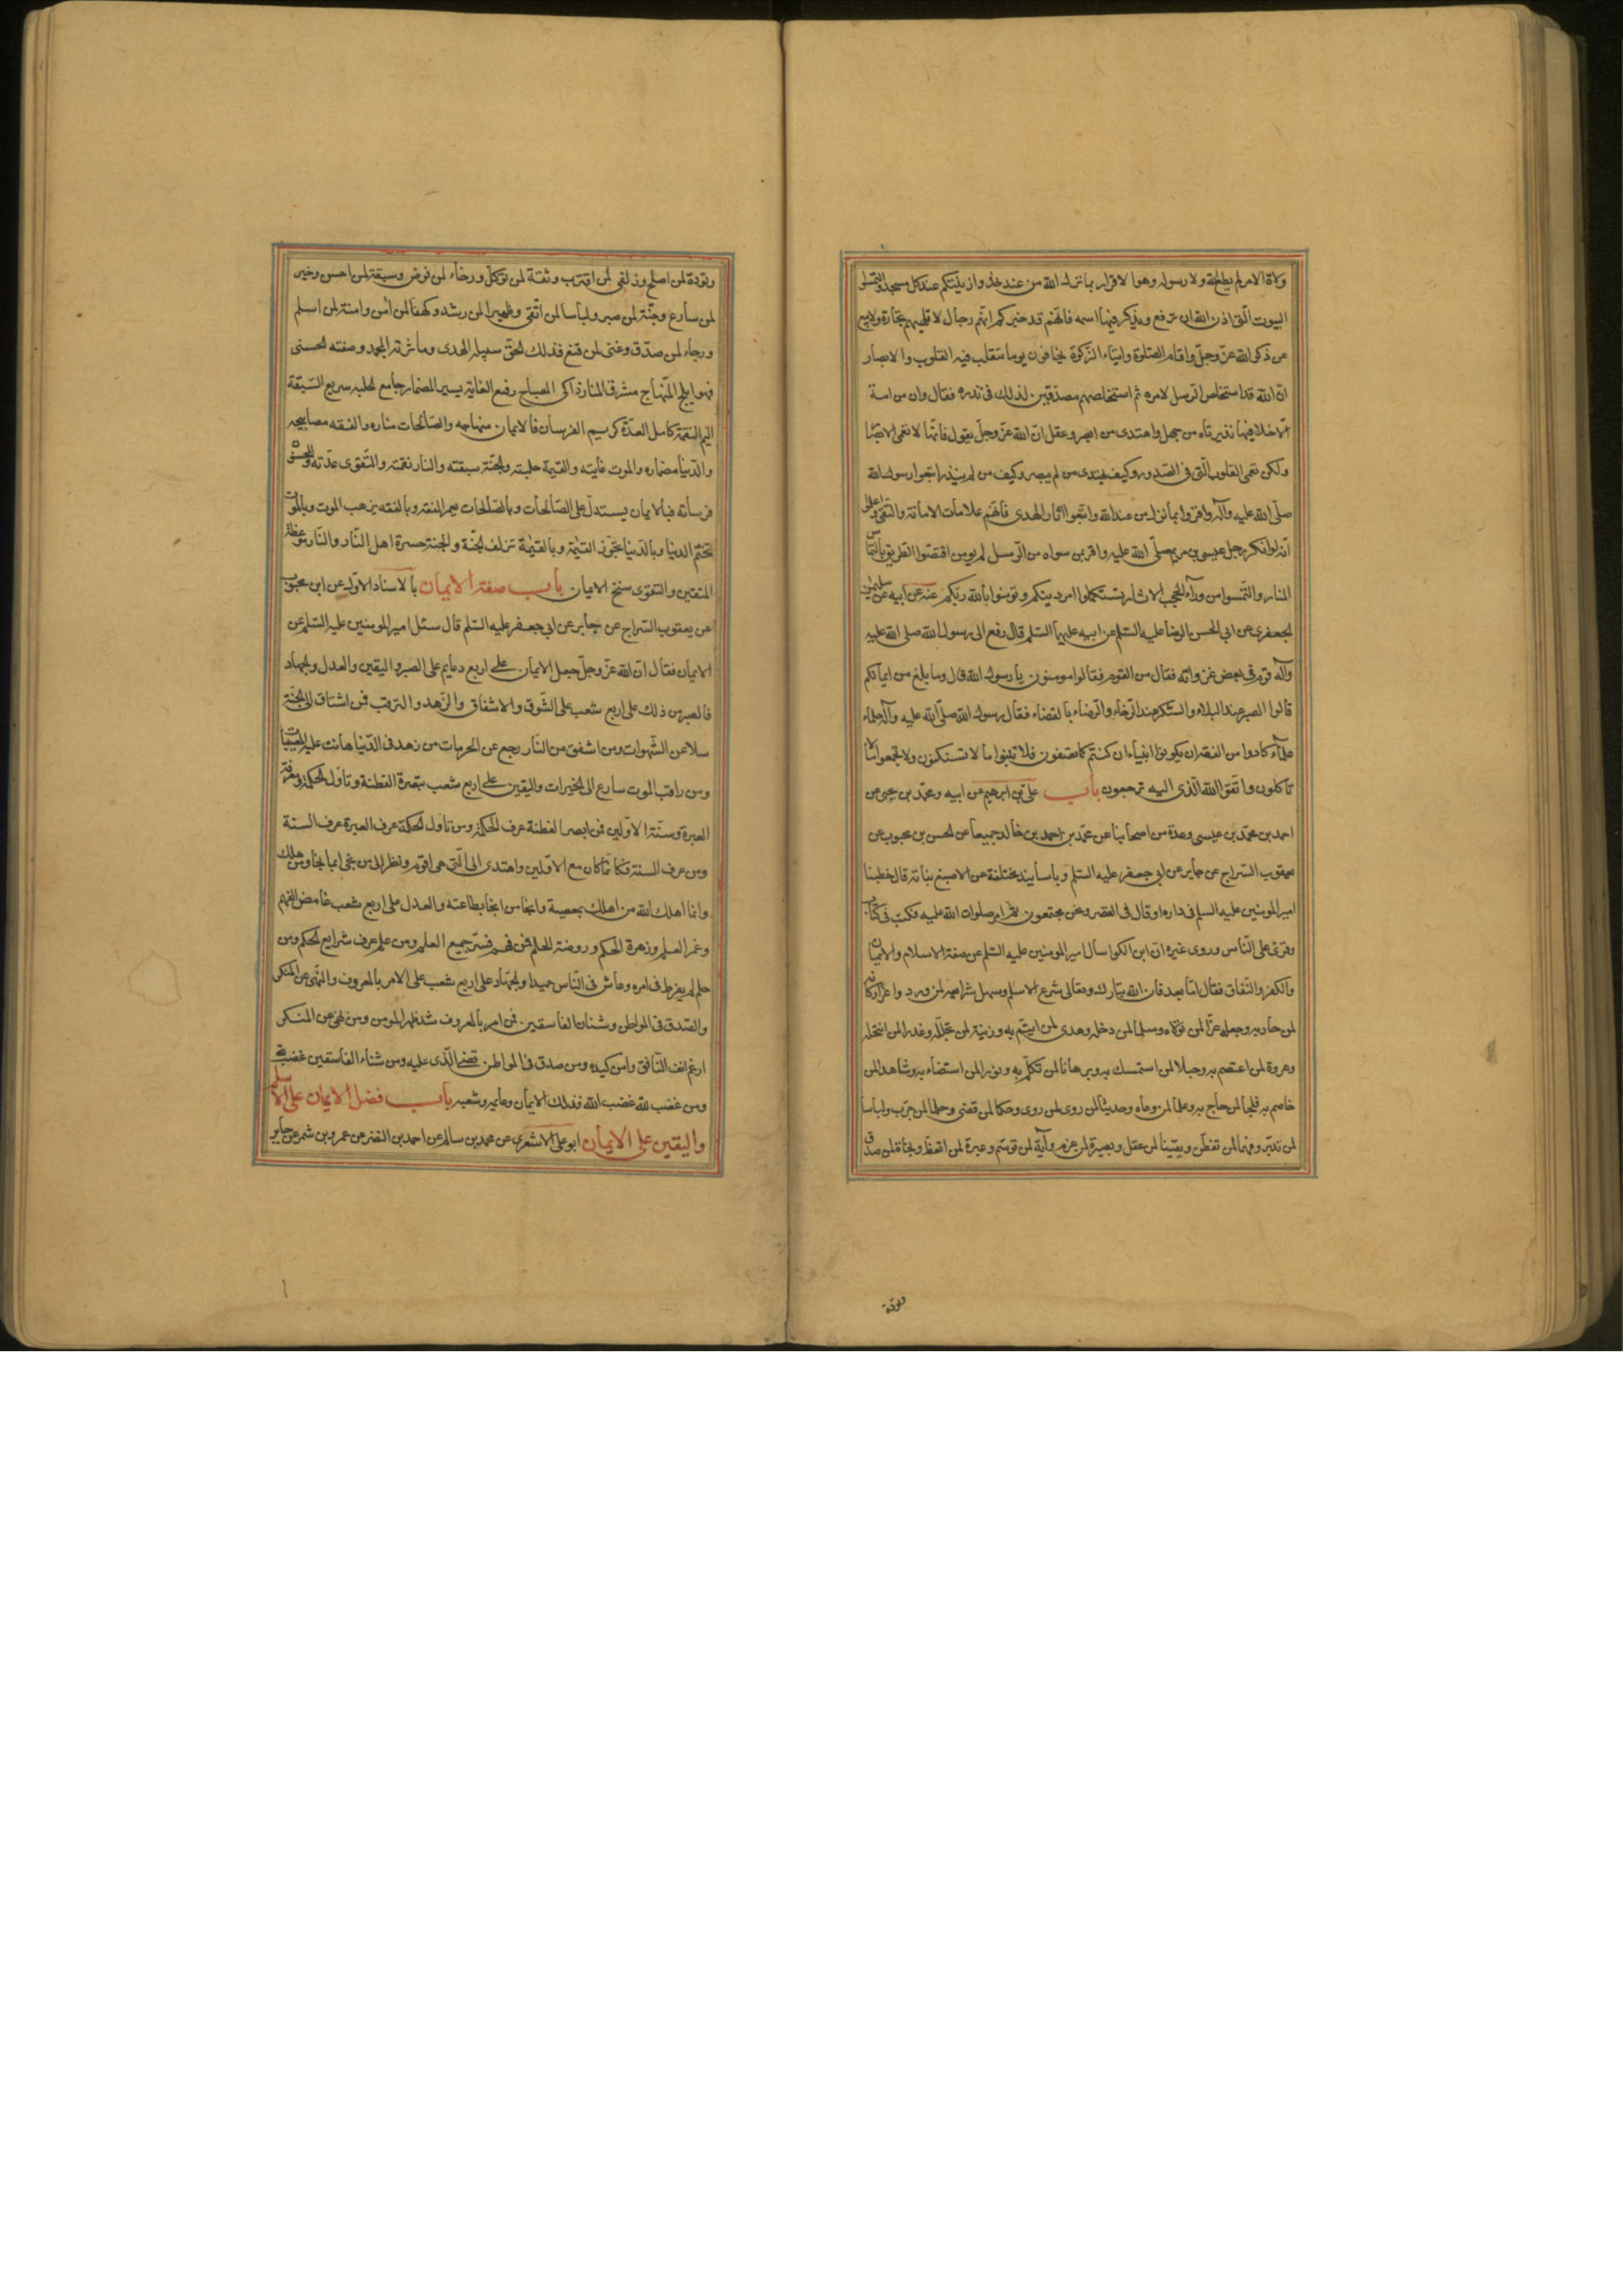 ولاة الامر لم يطع الله ولا رسوله وهو الاقرار بما نزل الله من عند خذوا زينتكم عند كل مسجد والتمسوا
البيوت التى اذن الله ان ترفع ويذكر فيها اسمه فانهم قد خبركم انهم رجال لا تلهيهم تجارة ولا بيع
عن ذكر الله عز وجل واقام الصلوة وايتاء الزكوة يخافون يوما تتقلب فيه القلوب والابصار
ان الله قد استخلص الرسل لامره ثم استخلصهم مصدقين لذلك فى نذره فقال وان من امة
الا خلا فيها نذير تاه من جهل واهتدى من ابصر وعقل ان الله عز وجل يقول فانها لا تعمى الابصار
ولكن تعمى القلوب التى فى الصدور وكيف يهتدى من لم يبصر وكيف من لم ينذر اتبعوا رسول الله
صلى الله عليه وآله واقروا بما نزل من عند الله واتبعوا اثار الهدى فانهم علامات الامانة والتقى واعلموا
انه لو انكر رجل عيسى بن مريم صلى الله عليه واقر بمن سواه من الرسل لم يومن اقتصوا الطريق بالتماس
المنار والتمسوا من ورآء الحجب الاثار تستكملوا امر دينكم وتومنوا بالله ربكم عنه عن ابيه عن سليمن
الجعفرى عن ابى الحسن الرضا عليه السلم عن ابيه عليهما السلم قال رفع الى رسول الله صلى الله عليه
وآله قوم فى بعض غزواته فقال من القوم فقالوا مومنون يا رسول الله قال وما بلغ من ايمانكم
قالوا الصبر عند البلاء والشكر عند الرخاء والرضاء بالقضاء فقال رسول الله صلى الله عليه وآله حلماء
علمآء كادوا من الفقه ان يكونوا انبياء ان كنتم كما تصفون فلا تبنوا ما لا تسكنون ولا تجمعوا ما لا
تاكلون واتقوا الله الذى اليه ترجعون باب على بن ابرهيم عن ابيه ومحمد بن يحيى عن
احمد بن محمد بن عيسى وعدة من اصحابنا عن محمد بن احمد بن خالد جميعا عن الحسن بن محبوب عن
يعقوب السراج عن جابر عن ابى جعفر عليه السلم وباسانيد مختلفة عن الاصبغ بن نباتة قال خطبنا
امير المومنين عليه السلم فى داره او قال فى القصر ونحن مجتمعون ثم امر صلوات الله عليه فكتب فى كتاب
وقرئ على الناس وروى غيره ان ابن الكوا سال امير المومنين عليه السلم عن صفة الاسلام والايمان
والكفر والنفاق فقال اما بعد فان الله تبارك وتعالى شرع الاسلم وسهل شرايعه لمن ورده واعز اركانه
لمن حاربه وجعله عزا لمن تولاه وسلما لمن دخله وهدى لمن ايتم به وزينة لمن تجلله وعذرا لمن انتحله
وعروة لمن اعتصم به وحبلا لمن استمسك به وبرهانا لمن تكلم به ونورا لمن استضاء به وشاهدا لمن
خاصم به وفلجا لمن حاج به وعلما لمن وعاه وحديثا لمن روى لمن روى وحكما لمن قضى وحلما لمن جرب ولباسا
لمن تدبر وفهما لمن تفطن ويقينا لمن عقل وبصيرة لمن عزم وآية لمن توسم وعبرة لمن اتعظ ونجاة لمن صدق
وتودة
وتودة لمن اصلح وزلفى لمن اقترب وثقة لمن توكل ورخاء لمن فوض وسبقة لمن احسن وخير
لمن سارع وجنة لمن صبر ولباسا لمن اتقى وظهيرا لمن رشد وكهفا لمن امن وامنة لمن اسلم
ورجاء لمن صدق وغنى لمن قنع فذلك الحق سبيله الهدى وماثرته المجد وصفته الحسنى
فهو ابلج المنهاج مشرق المنار ذاكى المصباح رفيع الغاية يسير المضمار جامع الحلبه سريع السبقة
اليم النقمة كامل العدة كريم الفرسان فالايمان منهاجه والصالحات مناره والفقه مصابيحه
والدنيا مضماره والموت غايته والقيمة حلبته والجنة سبقته والنار نقمته والتقوى عدته والمحسنون
فرسانه فبالايمان يستدل على الصالحات وبالصالحات يعمر الفقه وبالفقه يرهب الموت وبالموت
تختم الدنيا وبالدنيا تجوز القيمة وبالقيمة تزلف الجنة والجنة حسرة اهل النار والنار موعظة
المتقين والتقوى سنخ الايمان باب صفة الايمان بالاسناد الاول عن ابن محبوب
عن يعقوب السراج عن جابر عن ابى جعفر عليه السلم قال سئل امير المومنين عليه السلم عن
الايمان فقال ان الله عز وجل جعل الايمان على اربع دعايم على الصبر واليقين والعدل والجهاد
فالصبر من ذلك على اربع شعب على الشوق والاشفاق والزهد والترقب فمن اشتاق الى الجنة
سلا عن الشهوات ومن اشفق من النار رجع عن الحرمات من زهد فى الدنيا هانت عليه المصيبات
ومن راقب الموت سارع الى الخيرات واليقين على اربع شعب تبصرة الفطنة وتاول الحكمة ومعرفة
العبرة وسنة الاولين فمن ابصر الفطنة عرف الحكمة ومن تاول الحكمة عرف العبرة عرف السنة
ومن عرف السنة فكانما كان مع الاولين واهتدى الى التى هى اقوم ونظر الى من نجى بما نجا ومن هلك
وانما اهلك الله من اهلك بمعصية وانجا من انجا بطاعته والعدل على اربع شعب غامض الفهم
وغمر العلم وزهرة الحكم وروضة الحلم فمن فهم فسر جميع العلم ومن علم عرف شرايع الحكم ومن
حلم لم يفرط فى امره وعاش فى الناس حميدا والجهاد على اربع شعب على الامر بالمعروف والنهى عن المنكر
والصدق فى المواطن وشنان الفاسقين فمن امر بالمعروف شد ظهر المومن ومن نهى عن المنكر
ارغم انف المنافق وامن كيده ومن صدق فى المواطن قضى الذى عليه ومن شناء الفاسقين غضب لله
ومن غضب لله غضب الله فذلك الايمان ودعايمه وشعبه باب فضل الايمان على الاسلم
واليقين على الايمان ابو على الاشعرى عن محمد بن سالم عن احمد بن النضر عن عمرو بن شمر عن جابر